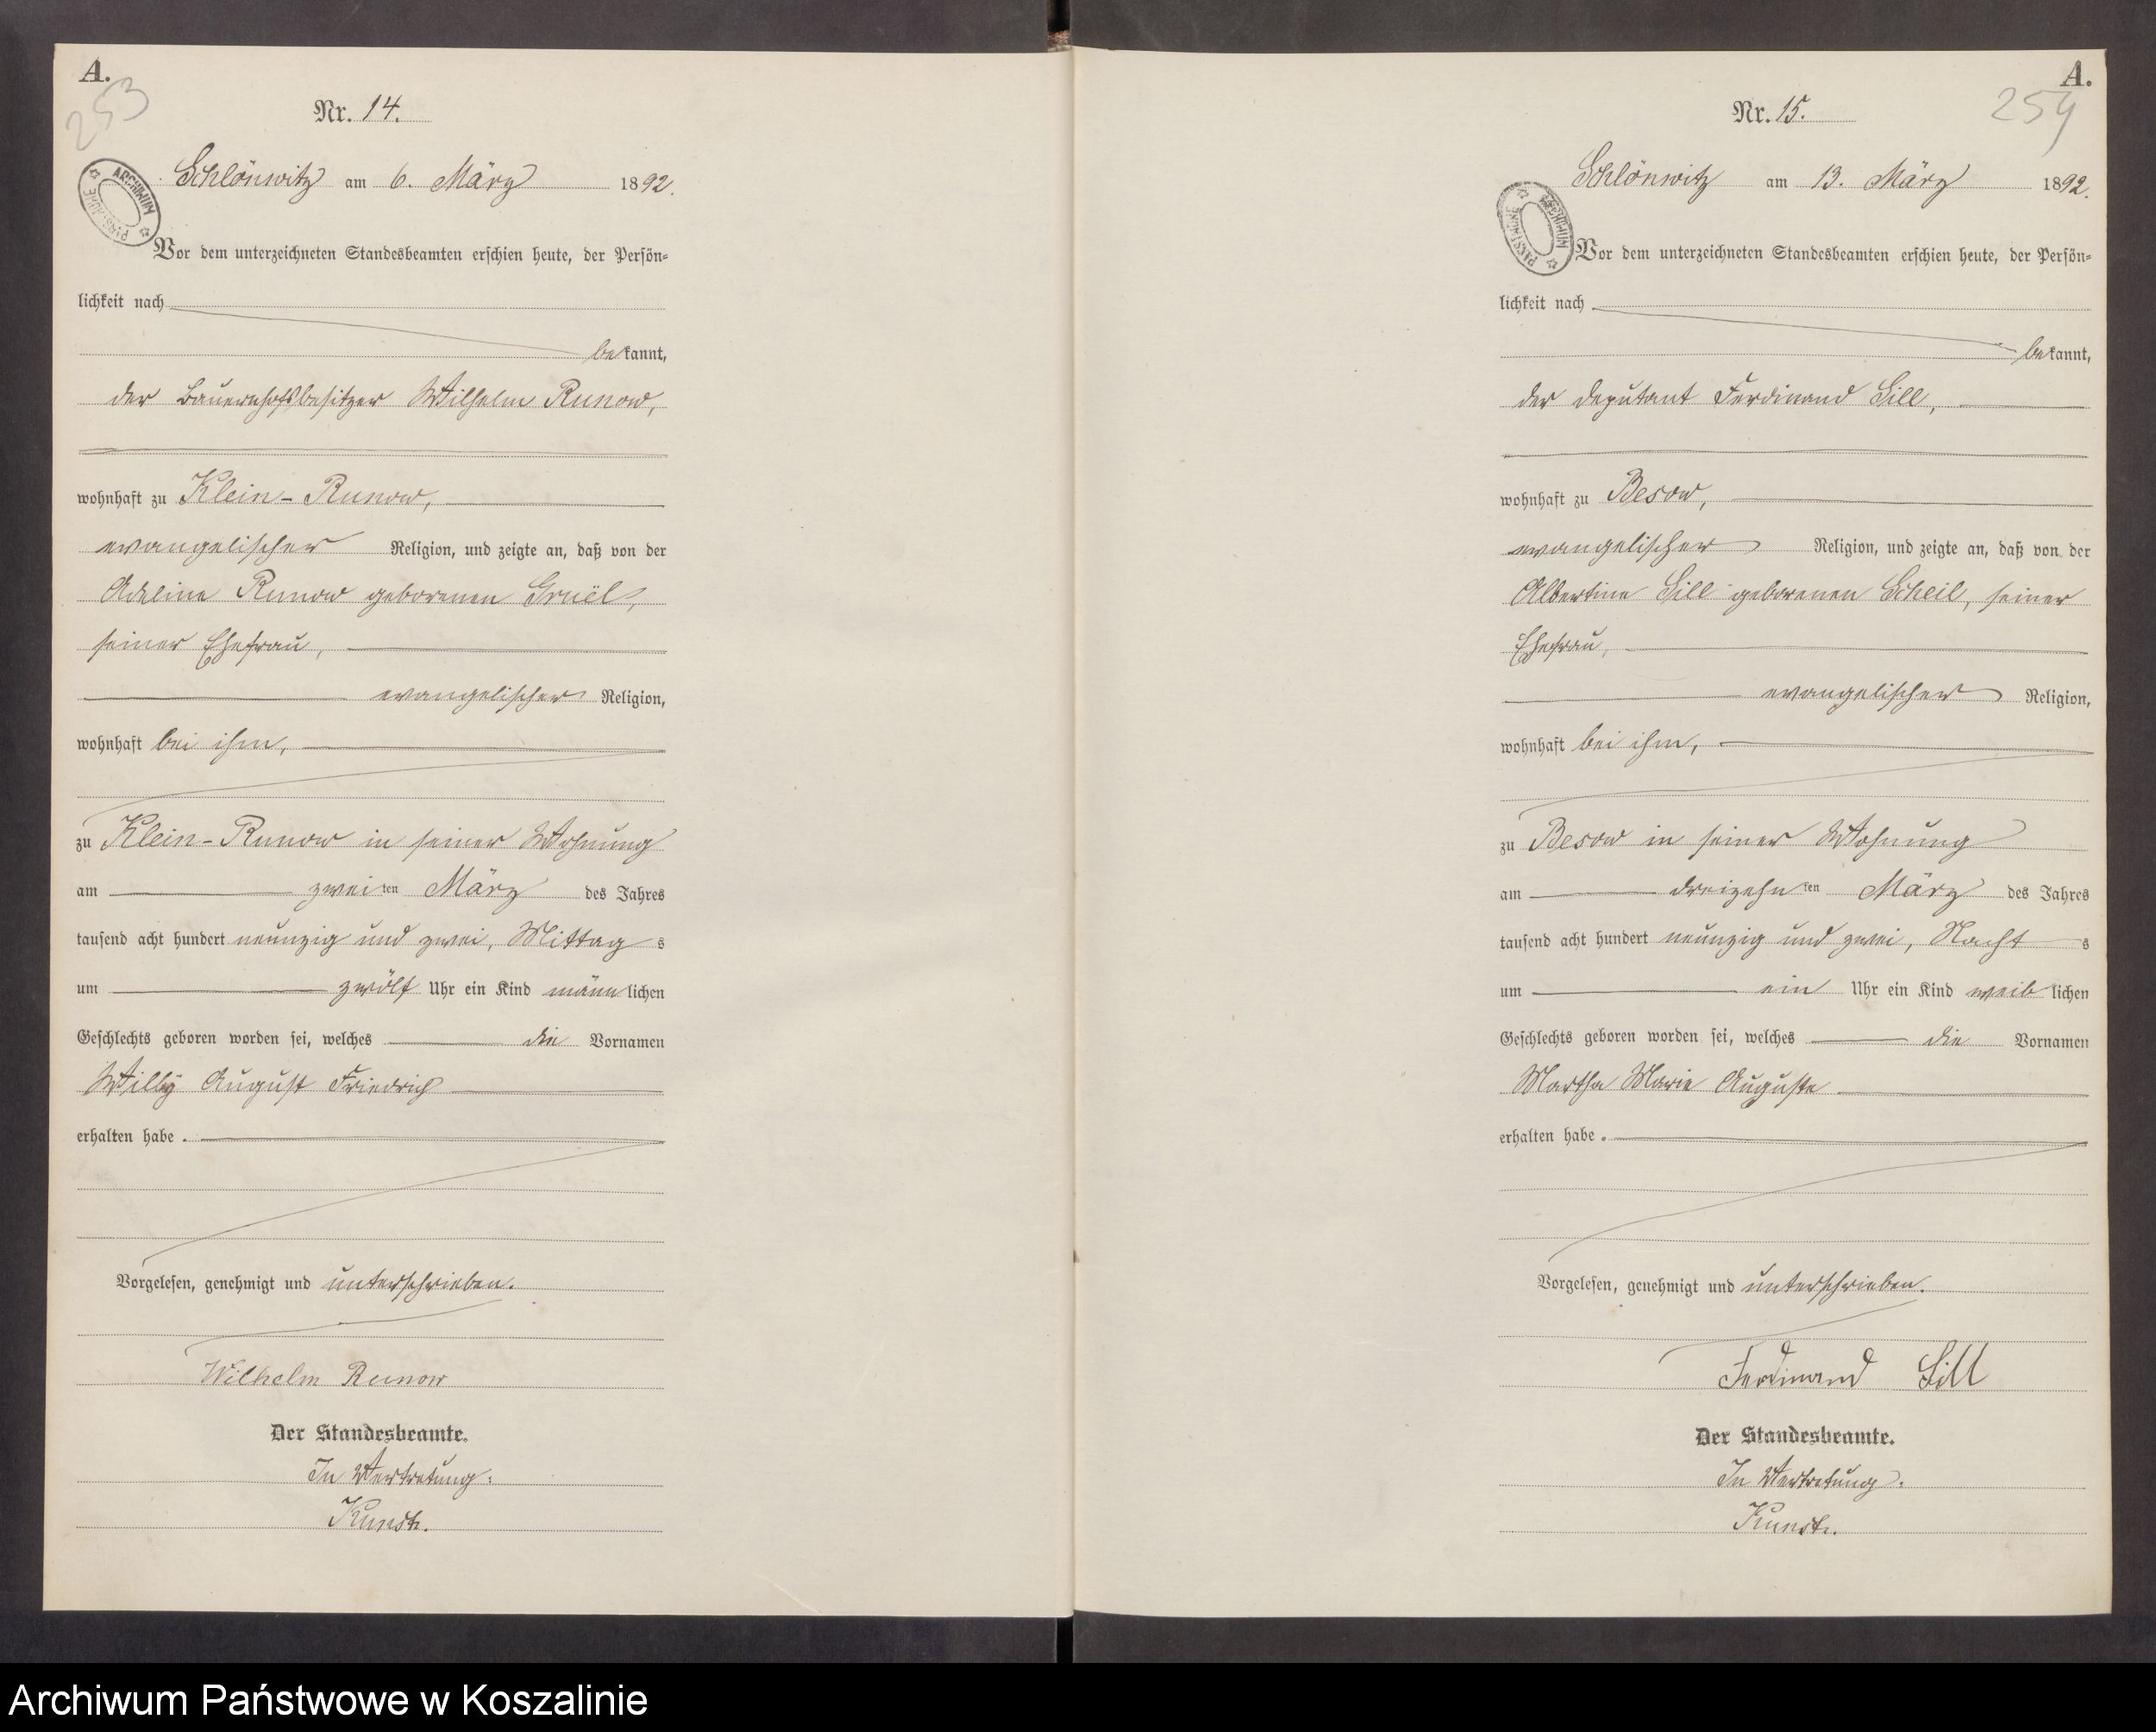 A.
253
Nr. 14.
Schlönwitz am 6. März 1892.
ARCHIWUM PAŃSTWOWE
Vor dem unterzeichneten Standesbeamten erschien heute, der Persön-
lichkeit nach
bekannt,
der Bauernhofsbesitzer Wilhelm Runow,
wohnhaft zu Klein-Runow,
evangelischer Religion, und zeigte an, daß von der
Adeline Runow geborenen Gruël,
seiner Ehefrau,
evangelischer Religion,
wohnhaft bei ihm,
zu Klein-Runow in seiner Wohnung
am zweiten März des Jahres
tausend acht hundert neunzig und zwei, Mittags
um zwölf Uhr ein Kind männlichen
Geschlechts geboren worden sei, welches die Vornamen
Willy August Friedrich
erhalten habe.
Vorgelesen, genehmigt und unterschrieben.
Wilhelm Runow
Der Standesbeamte.
In Vertretung:
A.
254
Nr. 15.
Schlönwitz am 13. März 1892.
ARCHIWUM PAŃSTWOWE
Vor dem unterzeichneten Standesbeamten erschien heute, der Persön-
lichkeit nach
bekannt,
der Deputant Ferdinand Sill,
wohnhaft zu Besow,
evangelischer Religion, und zeigte an, daß von der
Albertine Sill geborenen Scheil, seiner
Ehefrau,
evangelischer Religion,
wohnhaft bei ihm,
zu Besow in seiner Wohnung
am dreizehnten März des Jahres
tausend acht hundert neunzig und zwei, Nachts
um ein Uhr ein Kind weiblichen
Geschlechts geboren worden sei, welches die Vornamen
Martha Marie Auguste
erhalten habe.
Vorgelesen, genehmigt und unterschrieben.
Ferdinand Sill
Der Standesbeamte.
In Vertretung:
Archiwum Państwowe w Koszalinie